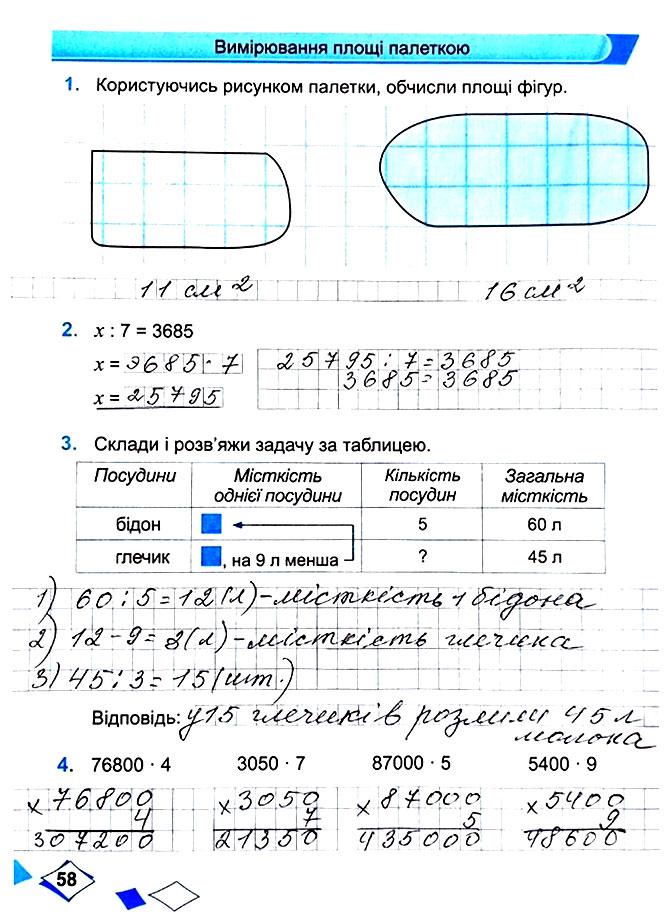 Вимірювання площі палеткою
1. Користуючись рисунком палетки, обчисли площі фігур.
11 см² 16 см²
2. x : 7 = 3685
x = 3685 · 7 25795 : 7 = 3685
3685 = 3685
x = 25795
3. Склади і розв'яжи задачу за таблицею.
Посудини Місткість однієї посудини Кількість посудин Загальна місткість
бідон 5 60 л
глечик , на 9 л менша ? 45 л
1) 60 : 5 = 12 (л) - місткість 1 бідона
2) 12 - 9 = 3 (л) - місткість глечика
3) 45 : 3 = 15 (шт.)
Відповідь: у 15 глечиків розлили 45 л
молока
4. 76800 · 4 3050 · 7 87000 · 5 5400 · 9
x 76800 x 3050 x 87000 x 5400
4 7 5 9
307200 21350 435000 48600
58